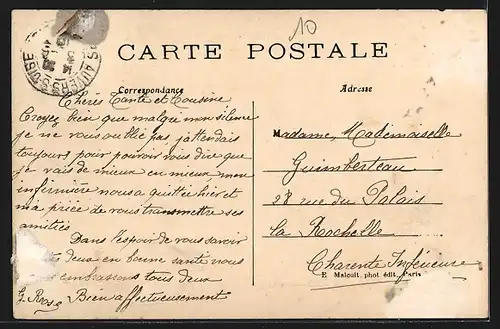 10
CARTE POSTALE
Correspondance
Adresse
AUVERS S OISE
Chères Tante et Cousine
Croyez bien que malgré mon silence
je ne vous oublie pas j'attendais
toujours pour pouvoir vous dire que
je vais de mieux en mieux mon
infirmière nous a quitté hier et
m'a priée de vous transmettre ses
amitiés
Dans l'espoir de vous savoir
deux en bonne santé nous
embrassons tous deux
Bien affectueusement
Madame, Mademoiselle
Guimberteau
28 rue du Palais
La Rochelle
Charente Inférieure
E. Malcuit, phot. édit., Paris